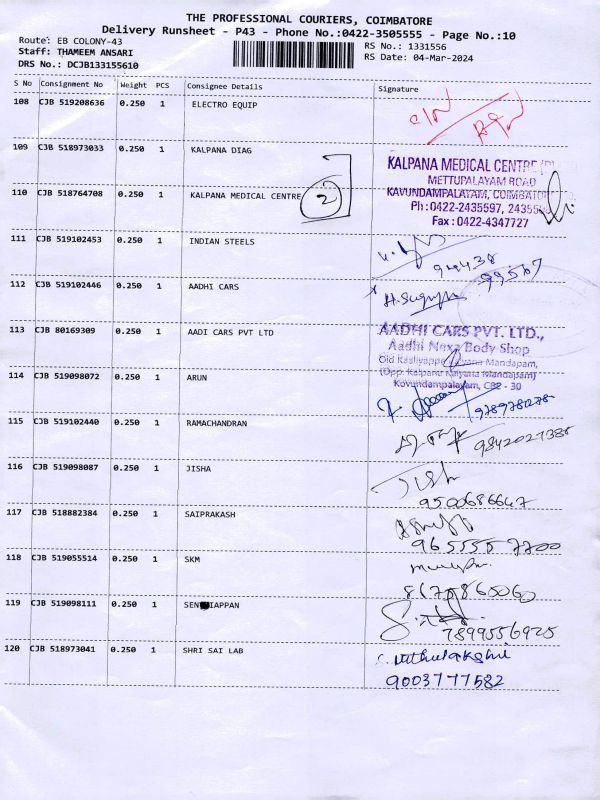 THE PROFESSIONAL COURIERS, COIMBATORE
Delivery Runsheet - P43 - Phone No.:0422-3505555 - Page No.:10
Route: EB COLONY-43
RS No.: 1331556
Staff: THAMEEM ANSARI
RS Date: 04-Mar-2024
DRS No.: DCJB133155610
S No Consignment No Weight PCS Consignee Details Signature
108 CJB 519208636 0.250 1 ELECTRO EQUIP
109 CJB 518973033 0.250 1 KALPANA DIAG
KALPANA MEDICAL CENTRE
METTUPALAYAM ROAD
110 CJB 518764708 0.250 1 KALPANA MEDICAL CENTRE 2
KAVUNDAMPALAYAM, COIMBATORE
Ph: 0422-2435597,
Fax: 0422-4347727
111 CJB 519102453 0.250 1 INDIAN STEELS
94438 99567
112 CJB 519102446 0.250 1 AADHI CARS
113 CJB 80169309 0.250 1 AADI CARS PVT LTD
AADHI CARS PVT. LTD.,
Aadhi Nexa Body Shop
Mandapam,
(Opp. Kalpana Nayana Mandapam)
Kovundampalayam, CBE - 30
114 CJB 519098072 0.250 1 ARUN
115 CJB 519102440 0.250 1 RAMACHANDRAN
116 CJB 519098087 0.250 1 JISHA
Jish
9500686647
117 CJB 518882384 0.250 1 SAIPRAKASH
9655557700
118 CJB 519055514 0.250 1 SKM
119 CJB 519098111 0.250 1 SEN IAPPAN
7899556925
120 CJB 518973041 0.250 1 SHRI SAI LAB
9003777582